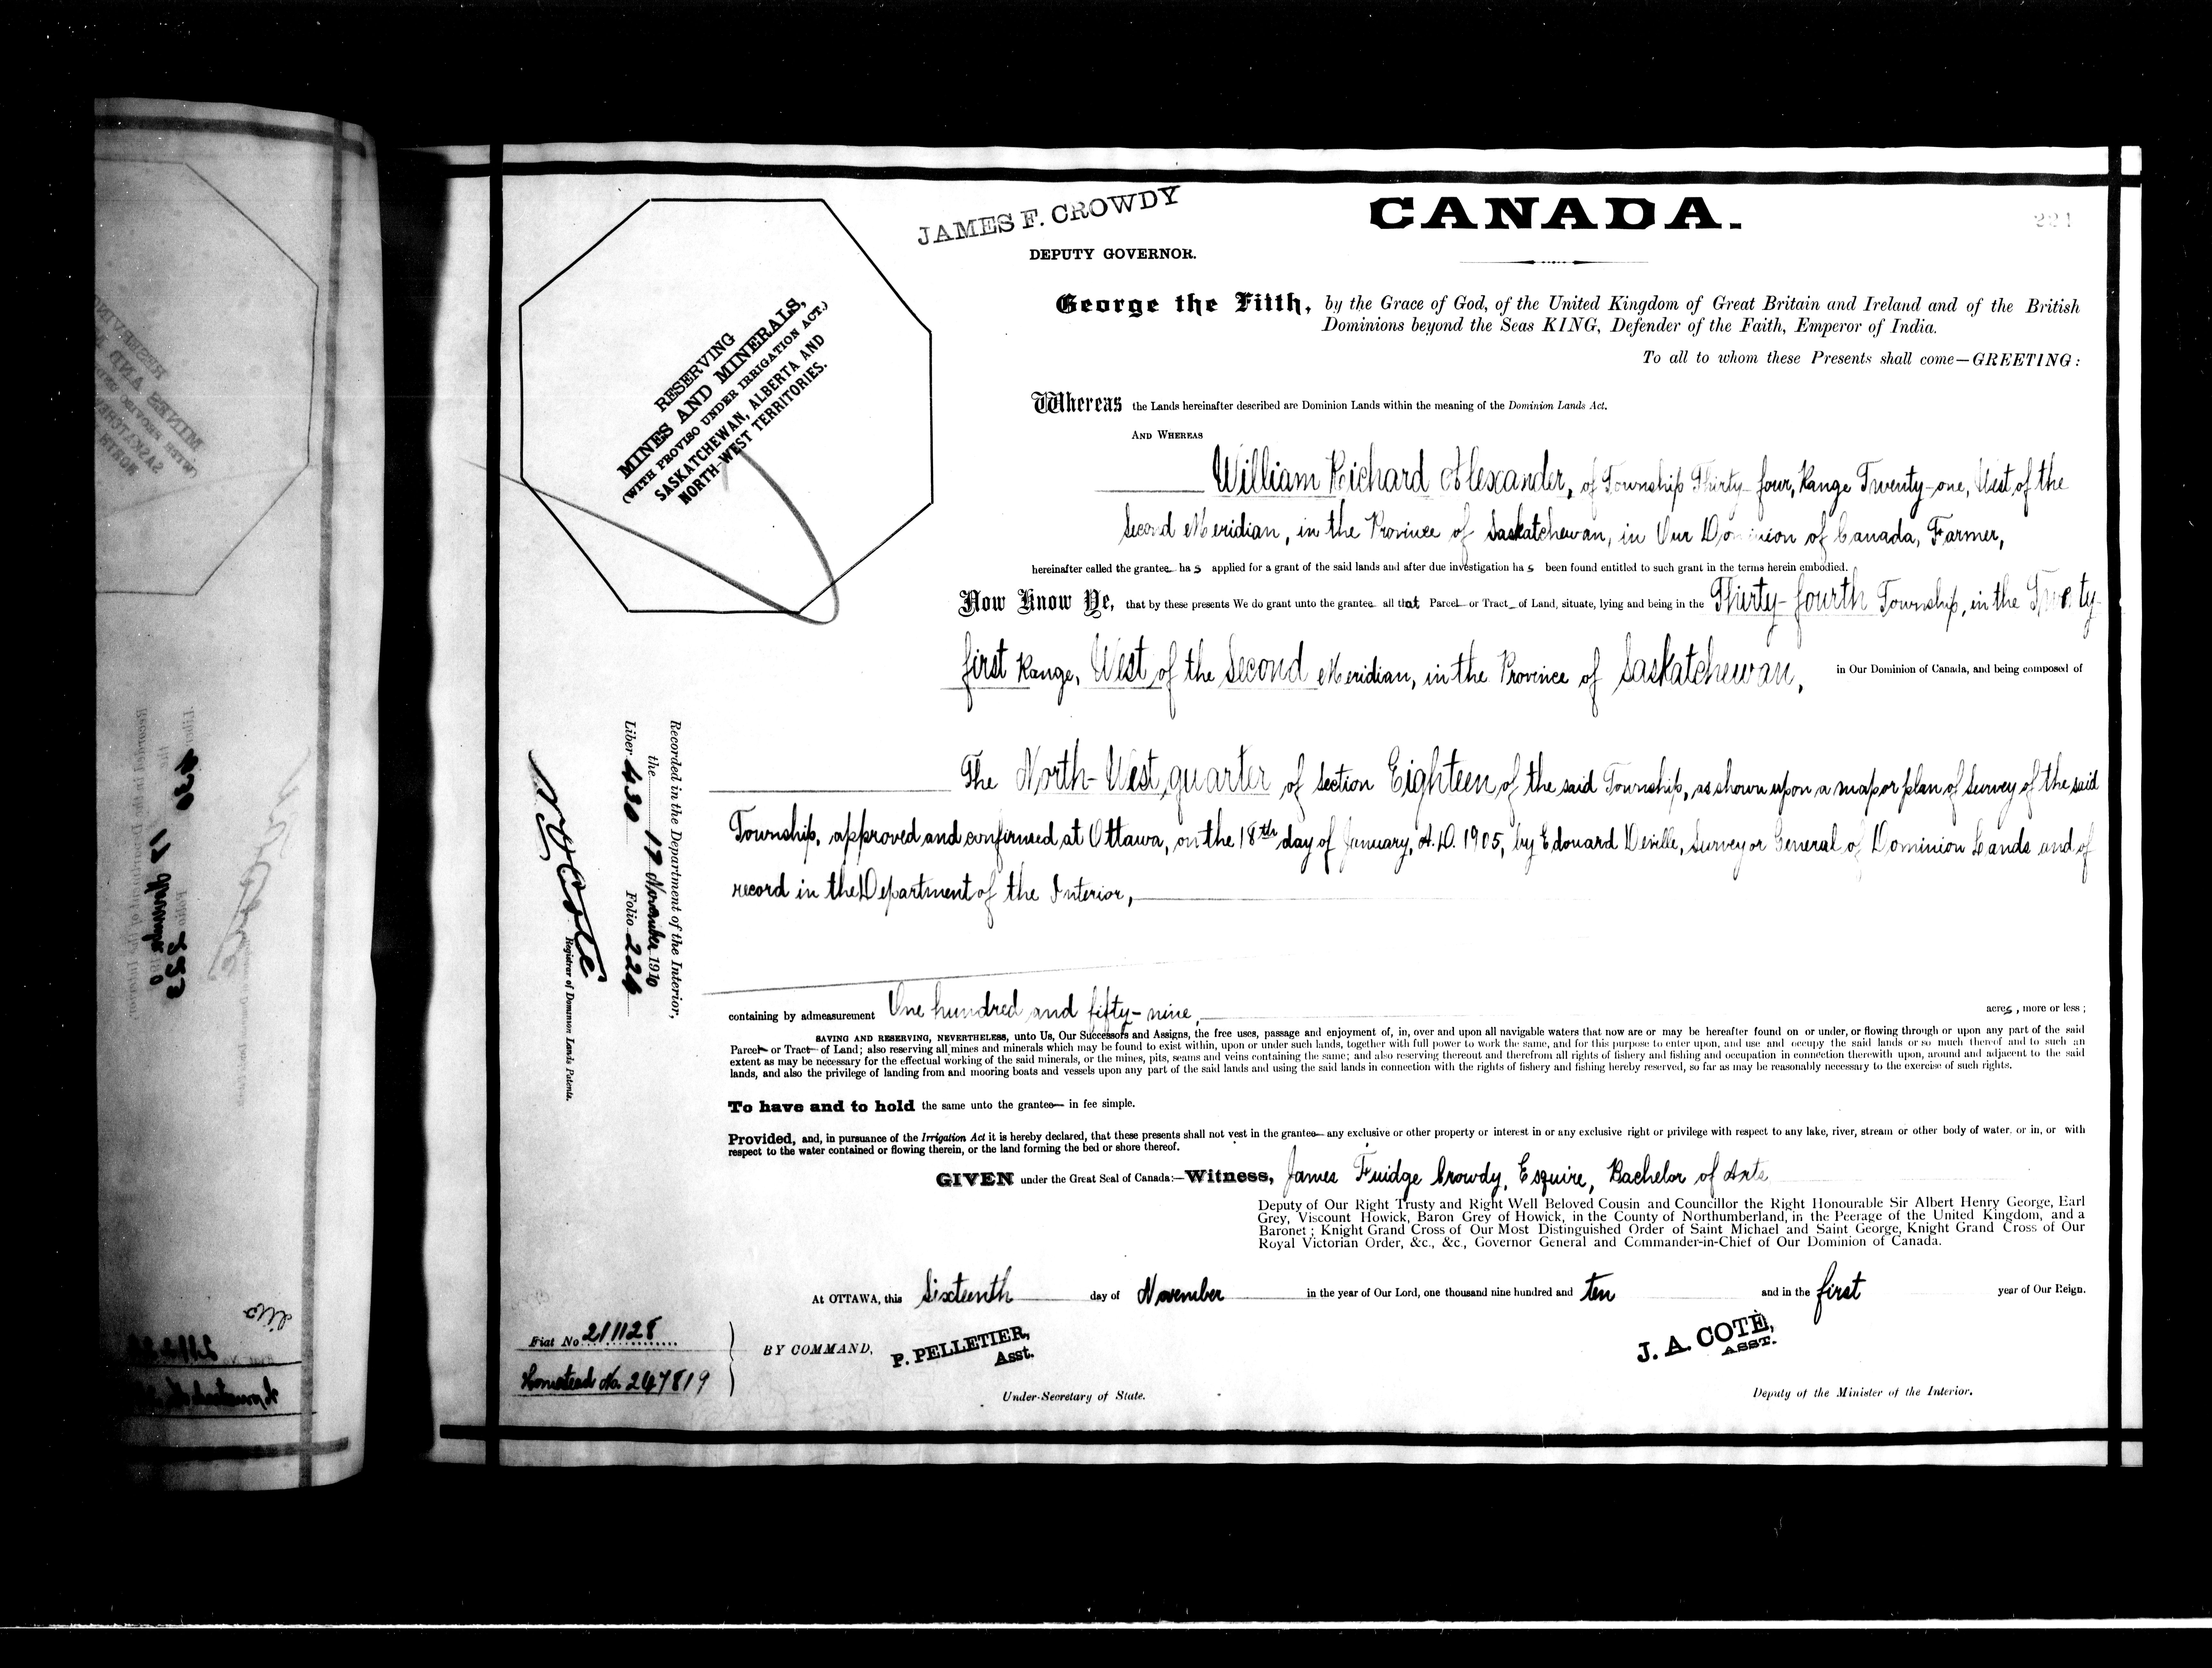 JAMES F. CROWDY
DEPUTY GOVERNOR.
CANADA.
RESERVING
MINES AND MINERALS,
(WITH PROVISO UNDER IRRIGATION ACT.)
SASKATCHEWAN, ALBERTA AND
NORTH-WEST TERRITORIES.
George the Fifth, by the Grace of God, of the United Kingdom of Great Britain and Ireland and of the British
Dominions beyond the Seas KING, Defender of the Faith, Emperor of India.
To all to whom these Presents shall come—GREETING:
Whereas the Lands hereinafter described are Dominion Lands within the meaning of the Dominion Lands Act.
AND WHEREAS
William Richard Alexander, of Township Thirty-four, Range Twenty-one, West of the
Second Meridian, in the Province of Saskatchewan, in Our Dominion of Canada, Farmer,
hereinafter called the grantee has applied for a grant of the said lands and after due investigation has been found entitled to such grant in the terms herein embodied.
Now Know Ye, that by these presents We do grant unto the grantee all that Parcel or Tract of Land, situate, lying and being in the Thirty-fourth Township, in the Twenty-
first Range, West of the Second Meridian, in the Province of Saskatchewan, in Our Dominion of Canada, and being composed of
The North-West quarter of section Eighteen of the said Township, as shown upon a map or plan of Survey of the said
Township, approved and confirmed at Ottawa, on the 18th day of January, A.D. 1905, by Edouard Deville, Surveyor General of Dominion Lands and of
record in the Department of the Interior,
Recorded in the Department of the Interior,
the 17 November 1910
Liber 430 Folio 224
N O Coté
Registrar of Dominion Lands Patents.
containing by admeasurement One hundred and fifty-nine, acres, more or less;
SAVING AND RESERVING, NEVERTHELESS, unto Us, Our Successors and Assigns, the free uses, passage and enjoyment of, in, over and upon all navigable waters that now are or may be hereafter found on or under, or flowing through or upon any part of the said
Parcel or Tract of Land; also reserving all mines and minerals which may be found to exist within, upon or under such lands, together with full power to work the same, and for this purpose to enter upon, and use and occupy the said lands or so much thereof and to such an
extent as may be necessary for the effectual working of the said minerals, or the mines, pits, seams and veins containing the same; and also reserving thereout and therefrom all rights of fishery and fishing and occupation in connection therewith upon, around and adjacent to the said
lands, and also the privilege of landing from and mooring boats and vessels upon any part of the said lands and using the said lands in connection with the rights of fishery and fishing hereby reserved, so far as may be reasonably necessary to the exercise of such rights.
To have and to hold the same unto the grantee in fee simple.
Provided, and, in pursuance of the Irrigation Act it is hereby declared, that these presents shall not vest in the grantee any exclusive or other property or interest in or any exclusive right or privilege with respect to any lake, river, stream or other body of water, or in, or with
respect to the water contained or flowing therein, or the land forming the bed or shore thereof.
GIVEN under the Great Seal of Canada:—Witness, James Fuidge Crowdy, Esquire, Bachelor of Arts
Deputy of Our Right Trusty and Right Well Beloved Cousin and Councillor the Right Honourable Sir Albert Henry George, Earl
Grey, Viscount Howick, Baron Grey of Howick, in the County of Northumberland, in the Peerage of the United Kingdom, and a
Baronet; Knight Grand Cross of Our Most Distinguished Order of Saint Michael and Saint George, Knight Grand Cross of Our
Royal Victorian Order, &c., &c., Governor General and Commander-in-Chief of Our Dominion of Canada.
At OTTAWA, this Sixteenth day of November in the year of Our Lord, one thousand nine hundred and ten and in the first year of Our Reign.
Fiat No 211128
Homestead No. 247819
BY COMMAND,
P. PELLETIER,
Asst.
Under-Secretary of State.
J. A. COTÈ,
ASST.
Deputy of the Minister of the Interior.